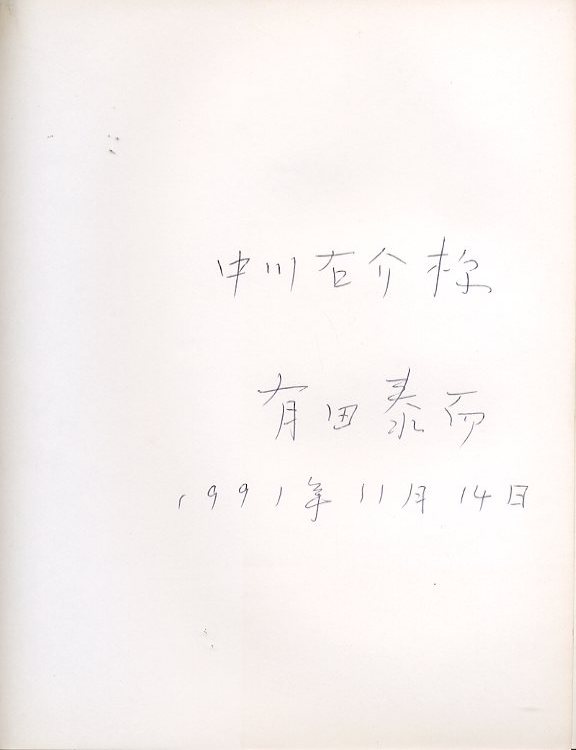 中川右介様
有田泰而
1991年11月14日